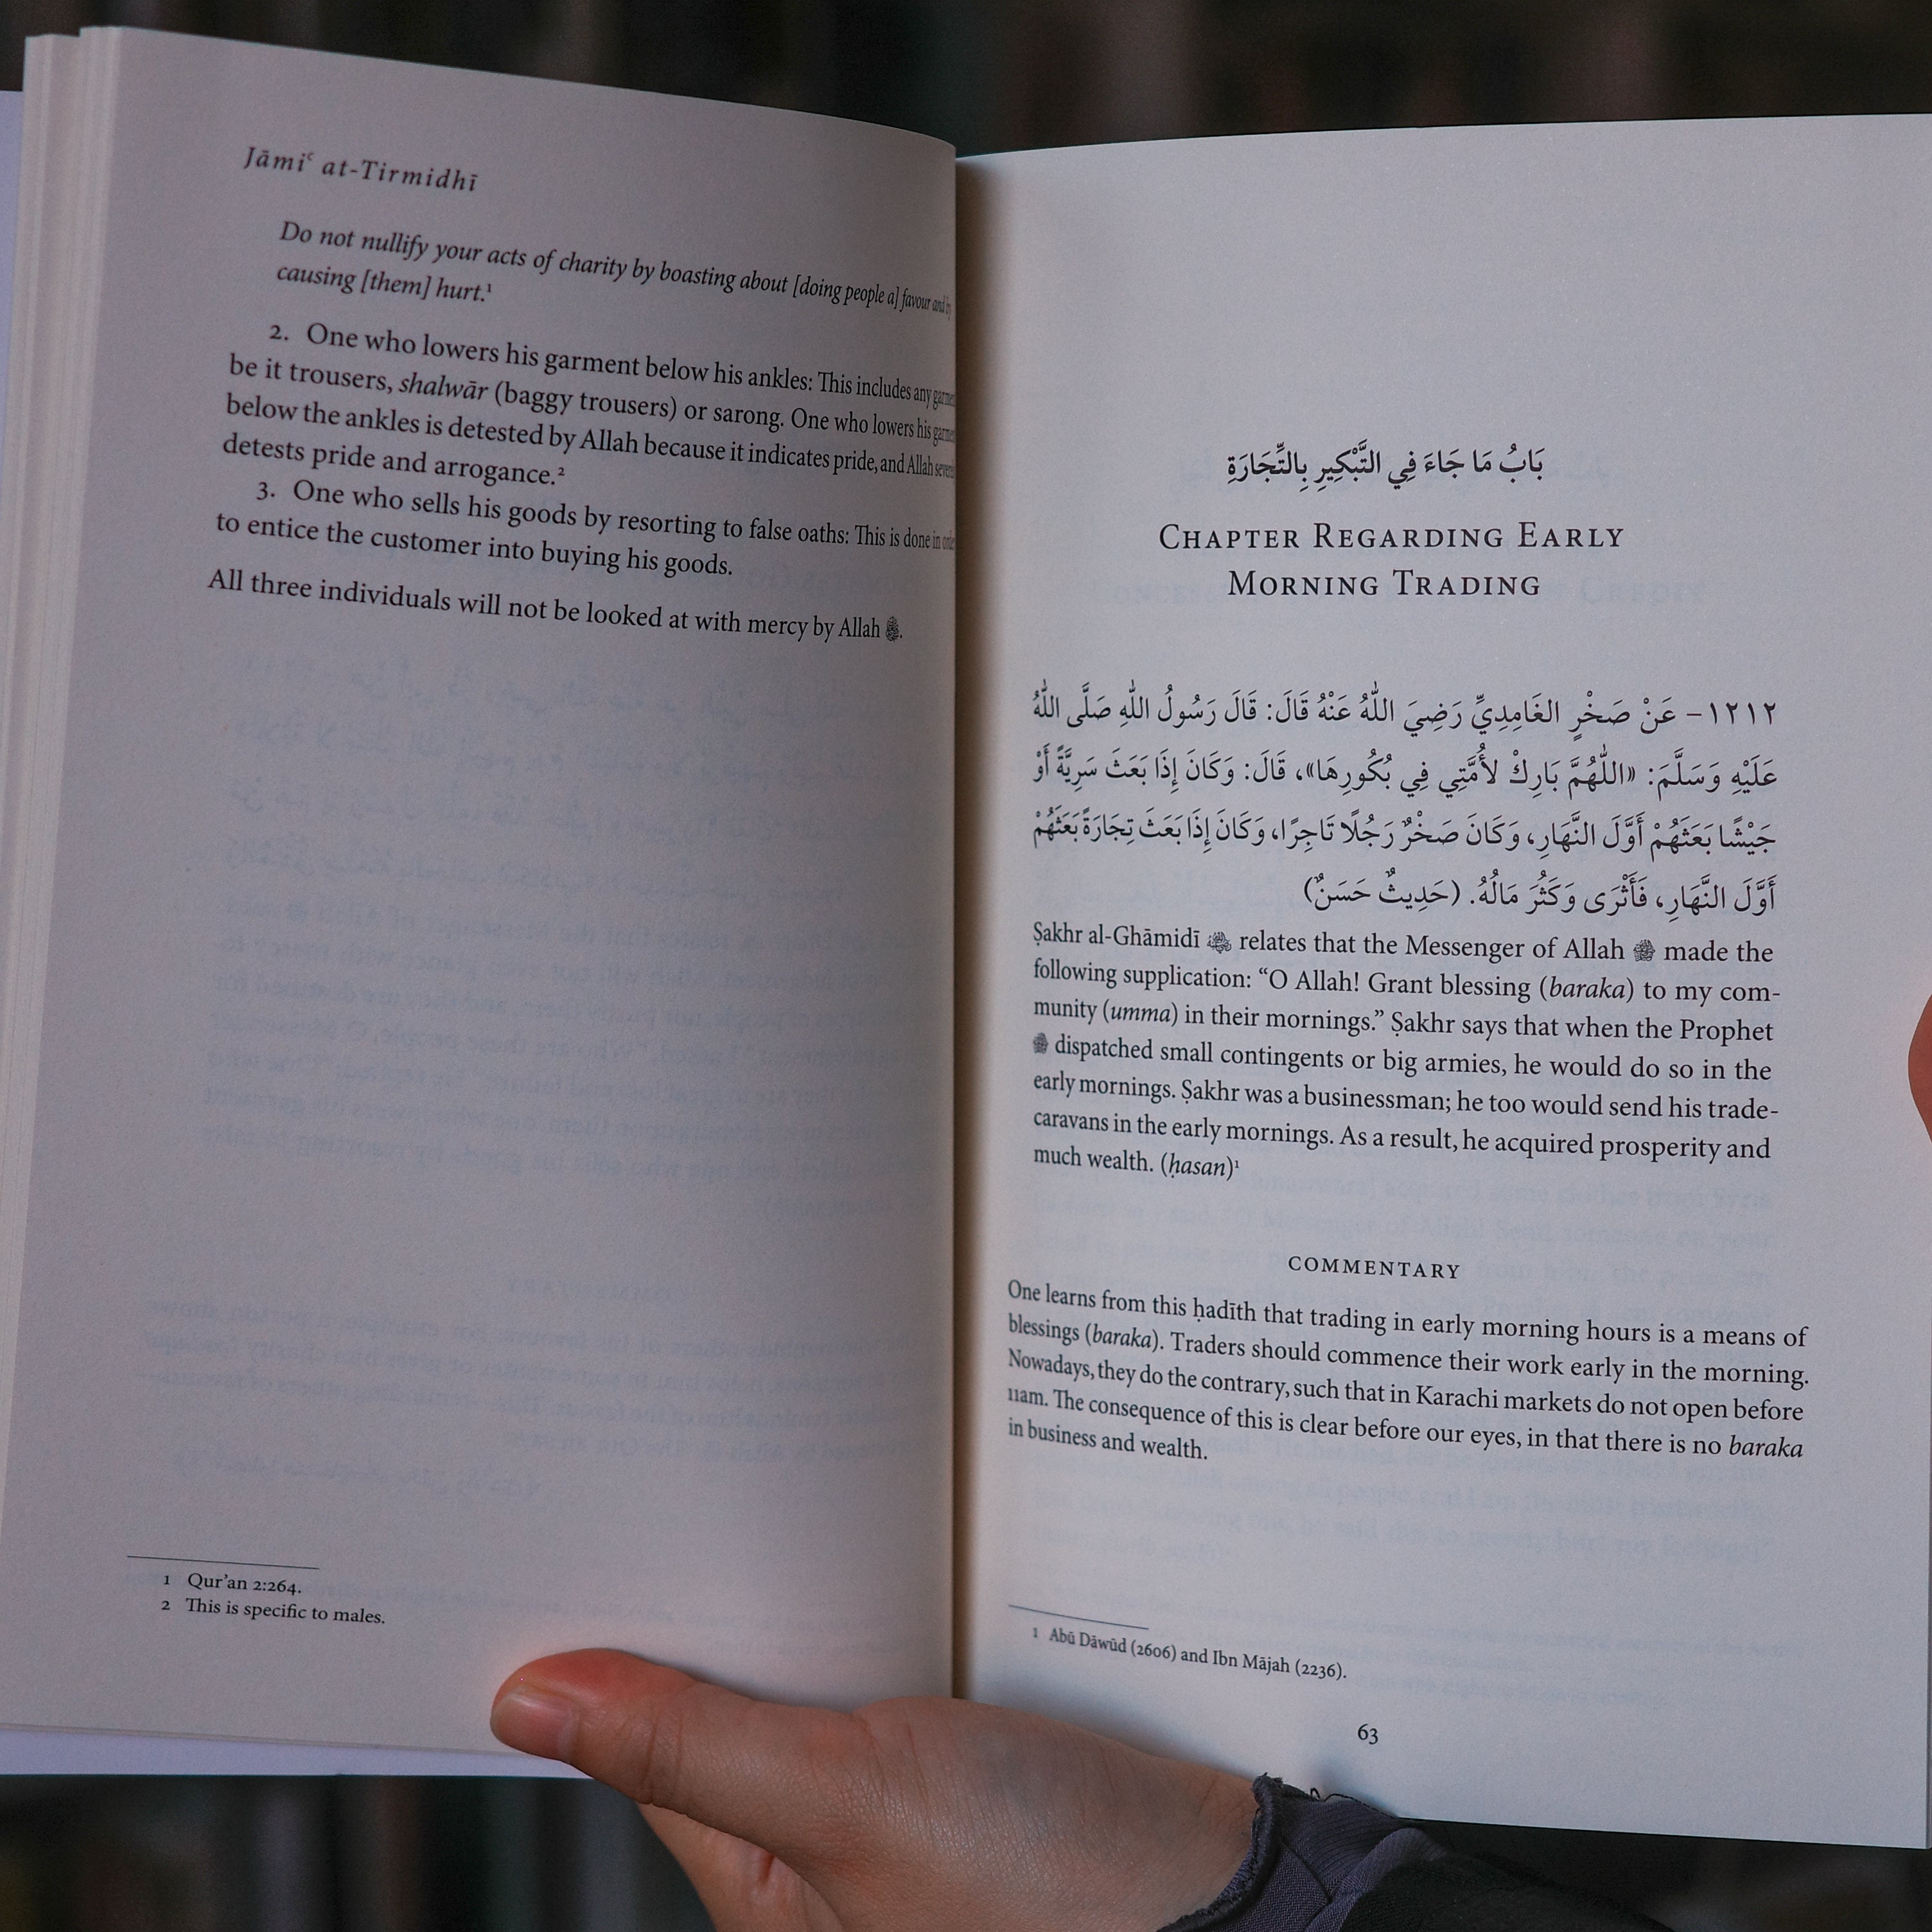 Jāmiʿ at-Tirmidhī
Do not nullify your acts of charity by boasting about [doing people a] favour and by
causing [them] hurt.¹
2. One who lowers his garment below his ankles: This includes any
be it trousers, shalwār (baggy trousers) or sarong. One who lowers his
below the ankles is detested by Allah because it indicates pride, and Allah
detests pride and arrogance.²
3. One who sells his goods by resorting to false oaths: This is done in
to entice the customer into buying his goods.
All three individuals will not be looked at with mercy by Allah ﷻ.
1 Qur’an 2:264.
2 This is specific to males.
بَابُ مَا جَاءَ فِي التَّبْكِيرِ بِالتِّجَارَةِ
Chapter Regarding Early
Morning Trading
١٢١٢- عَنْ صَخْرٍ الغَامِدِيِّ رَضِيَ اللهُ عَنْهُ قَالَ: قَالَ رَسُولُ اللهِ صَلَّى اللهُ
عَلَيْهِ وَسَلَّمَ: «اللّٰهُمَّ بَارِكْ لأُمَّتِي فِي بُكُورِهَا»، قَالَ: وَكَانَ إِذَا بَعَثَ سَرِيَّةً أَوْ
جَيْشًا بَعَثَهُمْ أَوَّلَ النَّهَارِ، وَكَانَ صَخْرٌ رَجُلًا تَاجِرًا، وَكَانَ إِذَا بَعَثَ تِجَارَةً بَعَثَهُمْ
أَوَّلَ النَّهَارِ، فَأَثْرَى وَكَثُرَ مَالُهُ. (حَدِيثٌ حَسَنٌ)
Ṣakhr al-Ghāmidī relates that the Messenger of Allah ﷺ made the
following supplication: “O Allah! Grant blessing (baraka) to my com-
munity (umma) in their mornings.” Ṣakhr says that when the Prophet
ﷺ dispatched small contingents or big armies, he would do so in the
early mornings. Ṣakhr was a businessman; he too would send his trade-
caravans in the early mornings. As a result, he acquired prosperity and
much wealth. (ḥasan)¹
COMMENTARY
One learns from this ḥadīth that trading in early morning hours is a means of
blessings (baraka). Traders should commence their work early in the morning.
Nowadays, they do the contrary, such that in Karachi markets do not open before
11am. The consequence of this is clear before our eyes, in that there is no baraka
in business and wealth.
1 Abū Dāwūd (2606) and Ibn Mājah (2236).
63